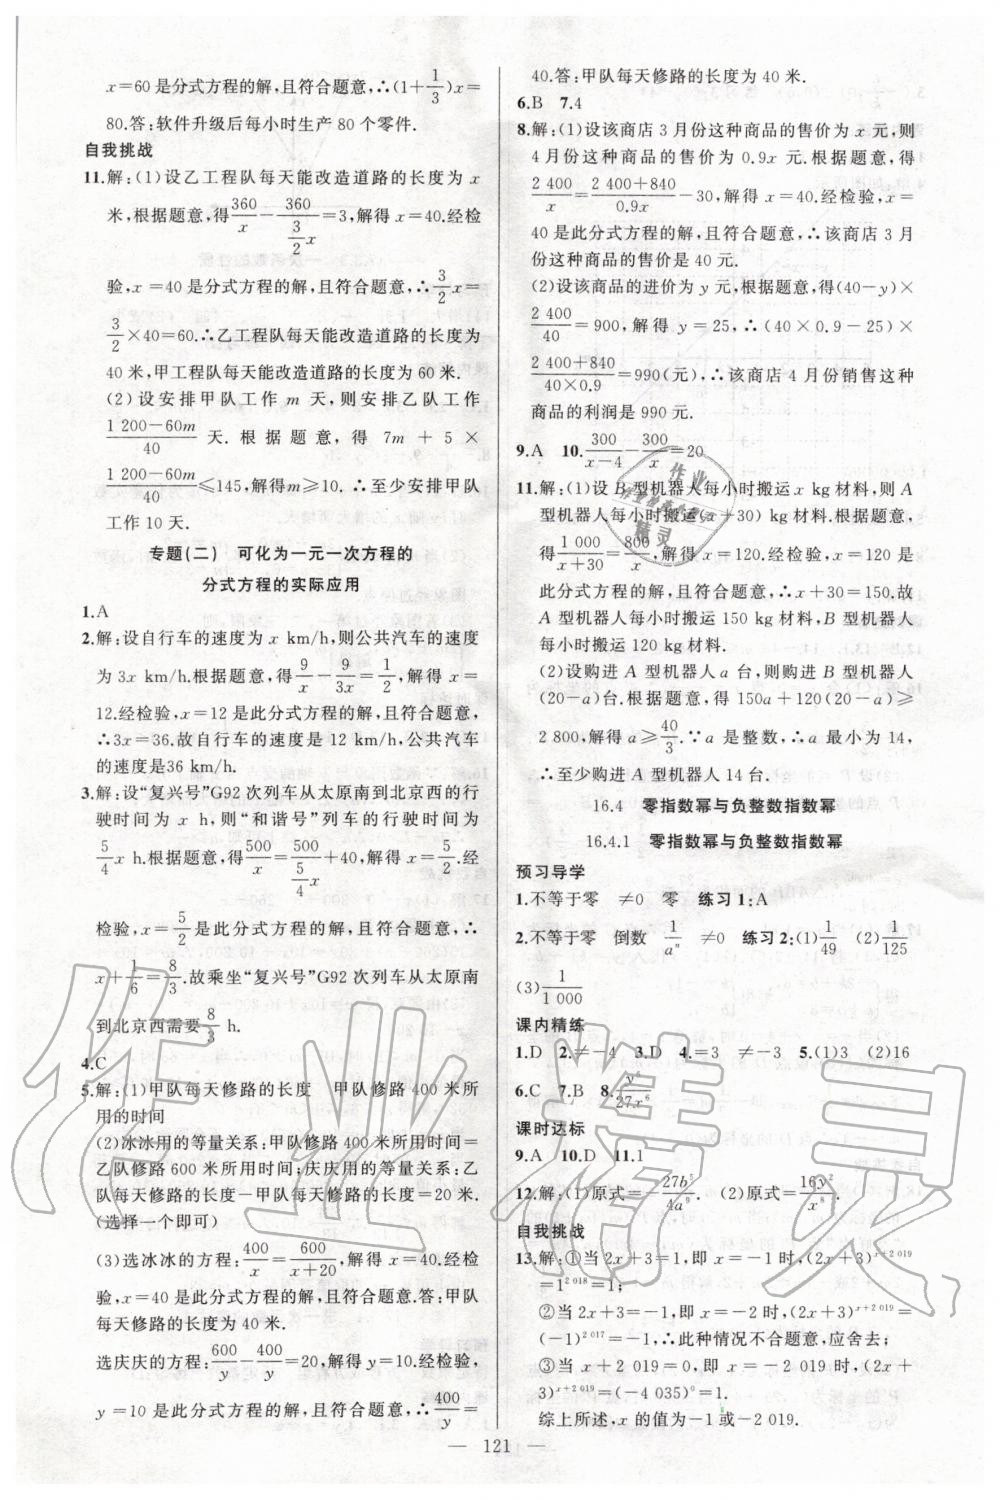 x=60是分式方程的解,且符合题意,∴(1+1/3)x=
80.答:软件升级后每小时生产80个零件.
自我挑战
11.解:(1)设乙工程队每天能改造道路的长度为 x
米,根据题意,得360/x−360/(3/2 x)=3,解得 x=40.经检
验,x=40是分式方程的解,且符合题意,∴3/2x=
3/2×40=60.∴乙工程队每天能改造道路的长度为
40米,甲工程队每天能改造道路的长度为60米.
(2)设安排甲队工作 m 天,则安排乙队工作
(1 200−60m)/40 天.根据题意,得 7m+5×
(1 200−60m)/40≤145,解得m≥10.∴至少安排甲队
工作10天.
专题(二) 可化为一元一次方程的
分式方程的实际应用
1.A
2.解:设自行车的速度为 x km/h,则公共汽车的速度
为 3x km/h.根据题意,得9/x−9/3x=1/2,解得 x=
12.经检验,x=12是此分式方程的解,且符合题意,
∴3x=36.故自行车的速度是 12 km/h,公共汽车
的速度是36 km/h.
3.解:设“复兴号”G92次列车从太原南到北京西的行
驶时间为 x h,则“和谐号”列车的行驶时间为
5/4x h.根据题意,得500/x=500/(5/4 x)+40,解得 x=5/2.经
检验,x=5/2是此分式方程的解,且符合题意,∴
x+1/6=8/3.故乘坐“复兴号”G92次列车从太原南
到北京西需要8/3 h.
4.C
5.解:(1)甲队每天修路的长度 甲队修路400米所
用的时间
(2)冰冰用的等量关系:甲队修路400米所用时间=
乙队修路600米所用时间;庆庆用的等量关系:乙
队每天修路的长度−甲队每天修路的长度=20米.
(选择一个即可)
(3)选冰冰的方程:400/x=600/(x+20),解得 x=40.经检
验,x=40是此分式方程的解,且符合题意.答:甲队
每天修路的长度为40米.
选庆庆的方程:600/y−400/y=20,解得y=10.经检验,
y=10是此分式方程的解,且符合题意,∴400/y=
40.答:甲队每天修路的长度为40米.
6.B 7.4
8.解:(1)设该商店3月份这种商品的售价为x元,则
4月份这种商品的售价为0.9x元.根据题意,得
2 400/x=(2 400+840)/0.9x−30,解得 x=40.经检验,x=
40是此分式方程的解,且符合题意,∴该商店3月
份这种商品的售价是40元.
(2)设该商品的进价为y元,根据题意,得(40−y)×
2 400/40=900,解得 y=25,∴(40×0.9−25)×
(2 400+840)/(40×0.9)=990(元),∴该商店4月份销售这种
商品的利润是990元.
9.A 10.300/(x−4)−300/x=20
11.解:(1)设B型机器人每小时搬运x kg材料,则A
型机器人每小时搬运(x+30) kg材料.根据题意,
得1 000/(x+30)=800/x,解得x=120.经检验,x=120是
此分式方程的解,且符合题意,∴x+30=150.故
A型机器人每小时搬运150 kg材料,B型机器人
每小时搬运120 kg材料.
(2)设购进A型机器人a台,则购进B型机器人
(20−a)台.根据题意,得 150a+120(20−a)≥
2 800,解得a≥40/3.∵a是整数,∴a最小为14,
∴至少购进A型机器人14台.
16.4 零指数幂与负整数指数幂
16.4.1 零指数幂与负整数指数幂
预习导学
1.不等于零 ≠0 零 练习1:A
2.不等于零 倒数 1/aⁿ ≠0 练习2:(1)1/49 (2)1/125
(3)1/1 000
课内精练
1.D 2.≠−4 3.D 4.=3 ≠−3 5.(1)3 (2)16
6.C 7.B 8.y⁶/27x⁶
课时达标
9.A 10.D 11.1
12.解:(1)原式=−27b⁵/4a⁹. (2)原式=16y²/x⁸.
自我挑战
13.解:①当2x+3=1,即x=−1时,(2x+3)^(x+2 019)
=1^(2 018)=1;
②当2x+3=−1,即x=−2时,(2x+3)^(x+2 019)=
(−1)^(2 017)=−1,∴此种情况不合题意,应舍去;
③当x+2 019=0,即x=−2 019时,(2x+
3)^(x+2 019)=(−4 035)⁰=1.
综上所述,x的值为−1或−2 019.
— 121 —
作业精灵